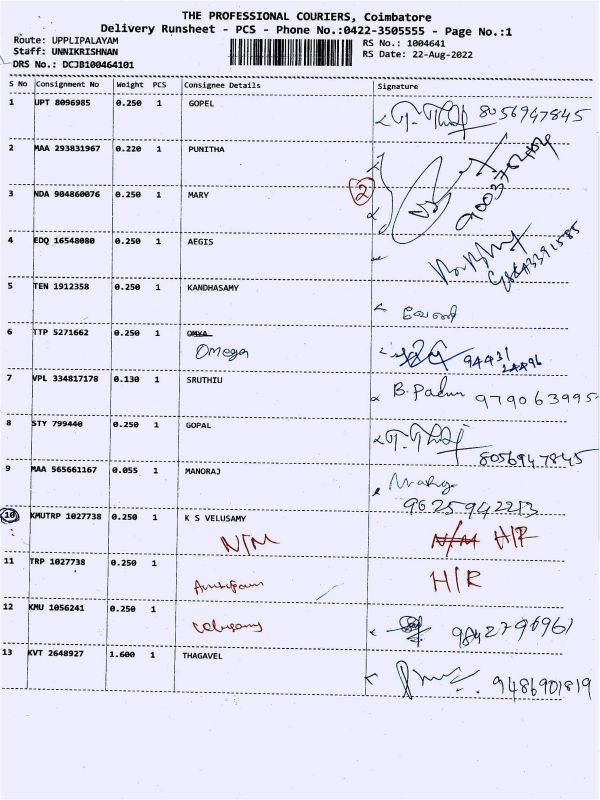 THE PROFESSIONAL COURIERS, Coimbatore
Delivery Runsheet - PCS - Phone No.:0422-3505555 - Page No.:1
Route: UPPLIPALAYAM
Staff: UNNIKRISHNAN
DRS No.: DCJB100464101
RS No.: 1004641
RS Date: 22-Aug-2022
S No Consignment No Weight PCS Consignee Details Signature
1 UPT 8096985 0.250 1 GOPEL 8056947845
2 MAA 293831967 0.220 1 PUNITHA
3 NDA 904860076 0.250 1 MARY 2
4 EDQ 16548080 0.250 1 AEGIS
5 TEN 1912358 0.250 1 KANDHASAMY
6 TTP 5271662 0.250 1 OMYA
Omega 94431
24496
7 VPL 334817178 0.130 1 SRUTHIU B. Padun 979063995
8 STY 799440 0.250 1 GOPAL
8056947845
9 MAA 565661167 0.055 1 MANORAJ
9625942213
10 KMUTRP 1027738 0.250 1 K S VELUSAMY
N/M N/M H/R
11 TRP 1027738 0.250 1 H/R
12 KMU 1056241 0.250 1
Velusamy 9842796961
13 KVT 2648927 1.600 1 THAGAVEL
9486901819